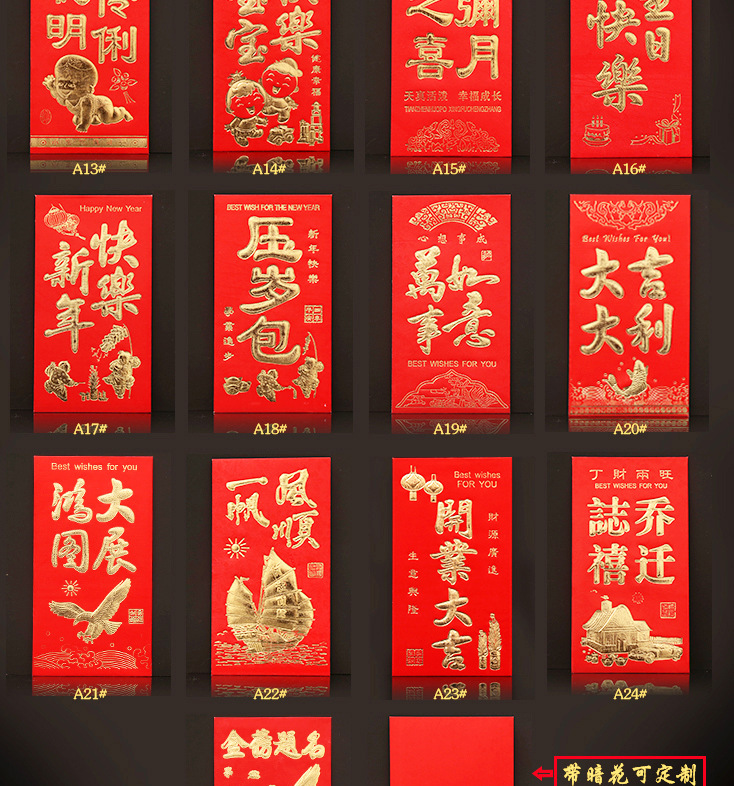 伶俐
明
A13#
快樂
宝宝
健康幸福
A14#
彌月
之喜
天真活泼 幸福成长
TIANZHENHUOPO XINGFUCHENGZHANG
A15#
日
快樂
A16#
Happy New Year
快樂
新年
A17#
BEST WISH FOR THE NEW YEAR
新年快樂
压岁包
學業進步
A18#
心想事成
如意
萬事
BEST WISHES FOR YOU
A19#
Best Wishes For You!
吉利
大大
A20#
Best wishes for you
大展
鴻图
A21#
風順
一帆
A22#
Best wishes
FOR YOU
財源廣進
開業大吉
生意興隆
A23#
丁財兩旺
BEST WISHES FOR YOU
乔迁
誌禧
A24#
金榜題名
带暗花可定制